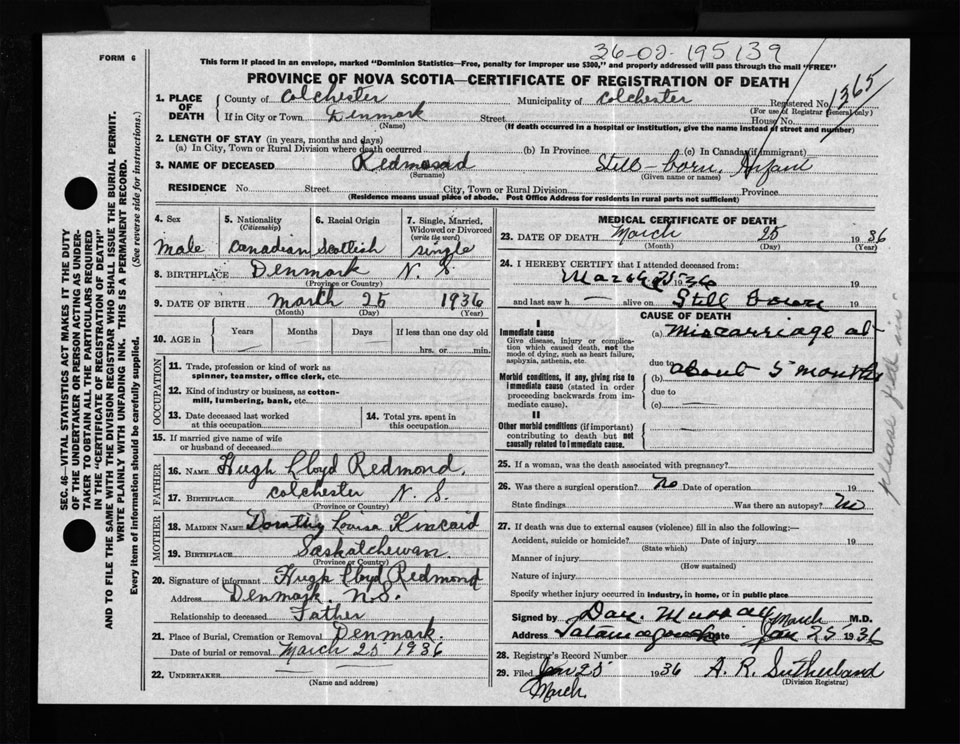 36-02-195139
FORM 6
This form if placed in an envelope, marked "Dominion Statistics—Free, penalty for improper use $300," and properly addressed will pass through the mail "FREE"
PROVINCE OF NOVA SCOTIA—CERTIFICATE OF REGISTRATION OF DEATH
1. PLACE OF DEATH County of Colchester Municipality of Colchester Registered No. 1365
(For use of Registrar General only)
If in City or Town Denmark Street House No.
(Name) (If death occurred in a hospital or institution, give the name instead of street and number)
2. LENGTH OF STAY (in years, months and days)
(a) In City, Town or Rural Division where death occurred (b) In Province (c) In Canada (if immigrant)
3. NAME OF DECEASED Redmond Still-born, Infant
(Surname) (Given name or names)
RESIDENCE No. Street City, Town or Rural Division Province
(Residence means usual place of abode. Post Office Address for residents in rural parts not sufficient)
SEC. 46—VITAL STATISTICS ACT MAKES IT THE DUTY
OF THE UNDERTAKER OR PERSON ACTING AS UNDER-
TAKER TO OBTAIN ALL THE PARTICULARS REQUIRED
IN THE "CERTIFICATE OF REGISTRATION OF DEATH"
AND TO FILE THE SAME WITH THE DIVISION REGISTRAR WHO SHALL ISSUE THE BURIAL PERMIT.
WRITE PLAINLY WITH UNFADING INK. THIS IS A PERMANENT RECORD.
Every item of information should be carefully supplied. (See reverse side for instructions.)
4. Sex
Male
5. Nationality
(Citizenship)
Canadian
6. Racial Origin
Scotlish
7. Single, Married,
Widowed or Divorced
(write the word)
single
8. BIRTHPLACE Denmark N. S.
(Province or Country)
9. DATE OF BIRTH March 25 1936
(Month) (Day) (Year)
10. AGE in Years Months Days If less than one day old
hrs. or min.
OCCUPATION
11. Trade, profession or kind of work as
spinner, teamster, office clerk, etc.
12. Kind of industry or business, as cotton-
mill, lumbering, bank, etc.
13. Date deceased last worked
at this occupation
14. Total yrs. spent in
this occupation
15. If married give name of wife
or husband of deceased
FATHER
16. NAME Hugh Lloyd Redmond.
17. BIRTHPLACE Colchester N. S.
(Province or Country)
MOTHER
18. MAIDEN NAME Dorothy Louisa Kincaid
19. BIRTHPLACE Saskatchewan.
(Province or Country)
20. Signature of informant Hugh Lloyd Redmond
Address Denmark N.S.
Relationship to deceased Father
21. Place of Burial, Cremation or Removal Denmark.
Date of burial or removal March 25 1936
22. UNDERTAKER
(Name and address)
MEDICAL CERTIFICATE OF DEATH
23. DATE OF DEATH March 25 1936
(Month) (Day) (Year)
24. I HEREBY CERTIFY that I attended deceased from:
March 25 1936 19
and last saw h— alive on Still Born 19
CAUSE OF DEATH
I
Immediate cause
Give disease, injury or complica-
tion which caused death, not the
mode of dying, such as heart failure,
asphyxia, asthenia, etc.
(a) Miscarriage at
due to
about 5 months
Morbid conditions, if any, giving rise to
immediate cause (stated in order
proceeding backwards from im-
mediate cause).
(b)
due to
(c)
II
Other morbid conditions (if important)
contributing to death but not
causally related to immediate cause.
please
25. If a woman, was the death associated with pregnancy?
26. Was there a surgical operation? No Date of operation 19
State findings Was there an autopsy? No
27. If death was due to external causes (violence) fill in also the following:—
Accident, suicide or homicide? Date of injury 19
(State which)
Manner of injury
(How sustained)
Nature of injury
Specify whether injury occurred in industry, in home, or in public place
Signed by Dan Murray M.D.
March
Address Tatamagouche Date Jan 25 1936
28. Registrar's Record Number
29. Filed Jan 25 1936 A. R. Sutherland
March (Division Registrar)